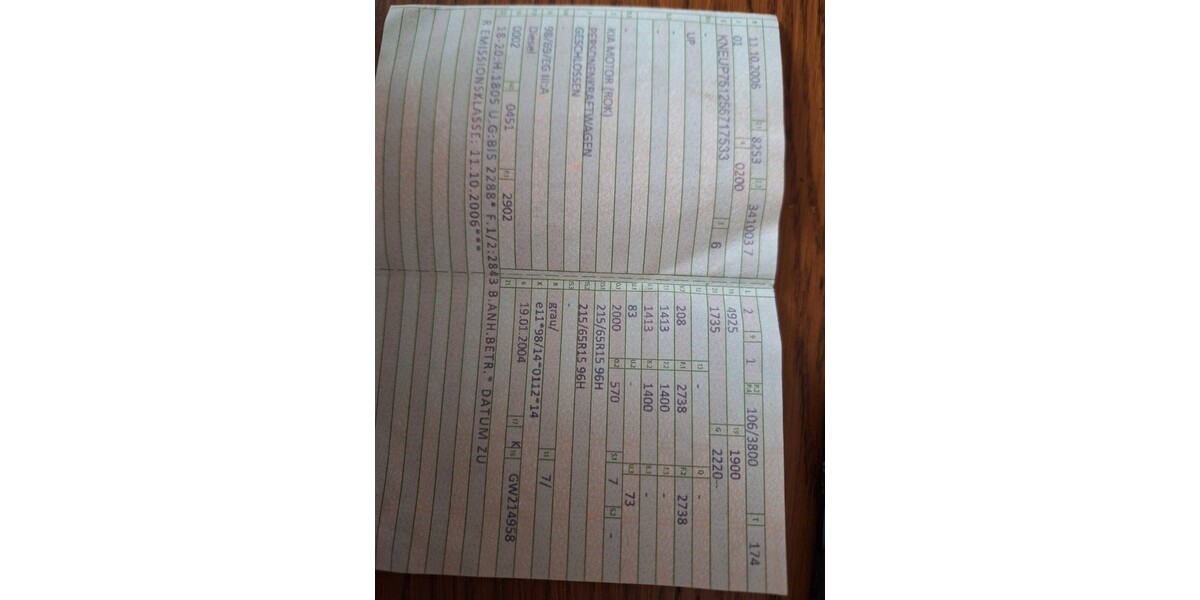 11.10.2006 8253 341003 7
01 0200
KNEUP7512567175​33 6
-
UP
-
-
-
KIA MOTOR (ROK)
PERSONENKRAFTWAGEN
GESCHLOSSEN
98/69/EG III;A
Diesel
0002 0451 2902
18-20:H.1805 U.G:BIS 2288* F.1/2:2843 B.ANH.BETR.* DATUM ZU
R EMISSIONSKLASSE: 11.10.2006***
L 2 9 1 106/3800 T 174
4925 19 1900
1735 G 2220--
- -
208 2738 2738
1413 1400 -
1413 1400 -
83 - 73
2000 570 7 -
215/65R15 96H
215/65R15 96H
-
grau/ 7/
e11*98/14*0112*14
19.01.2004 17 K 16 GW214958
21